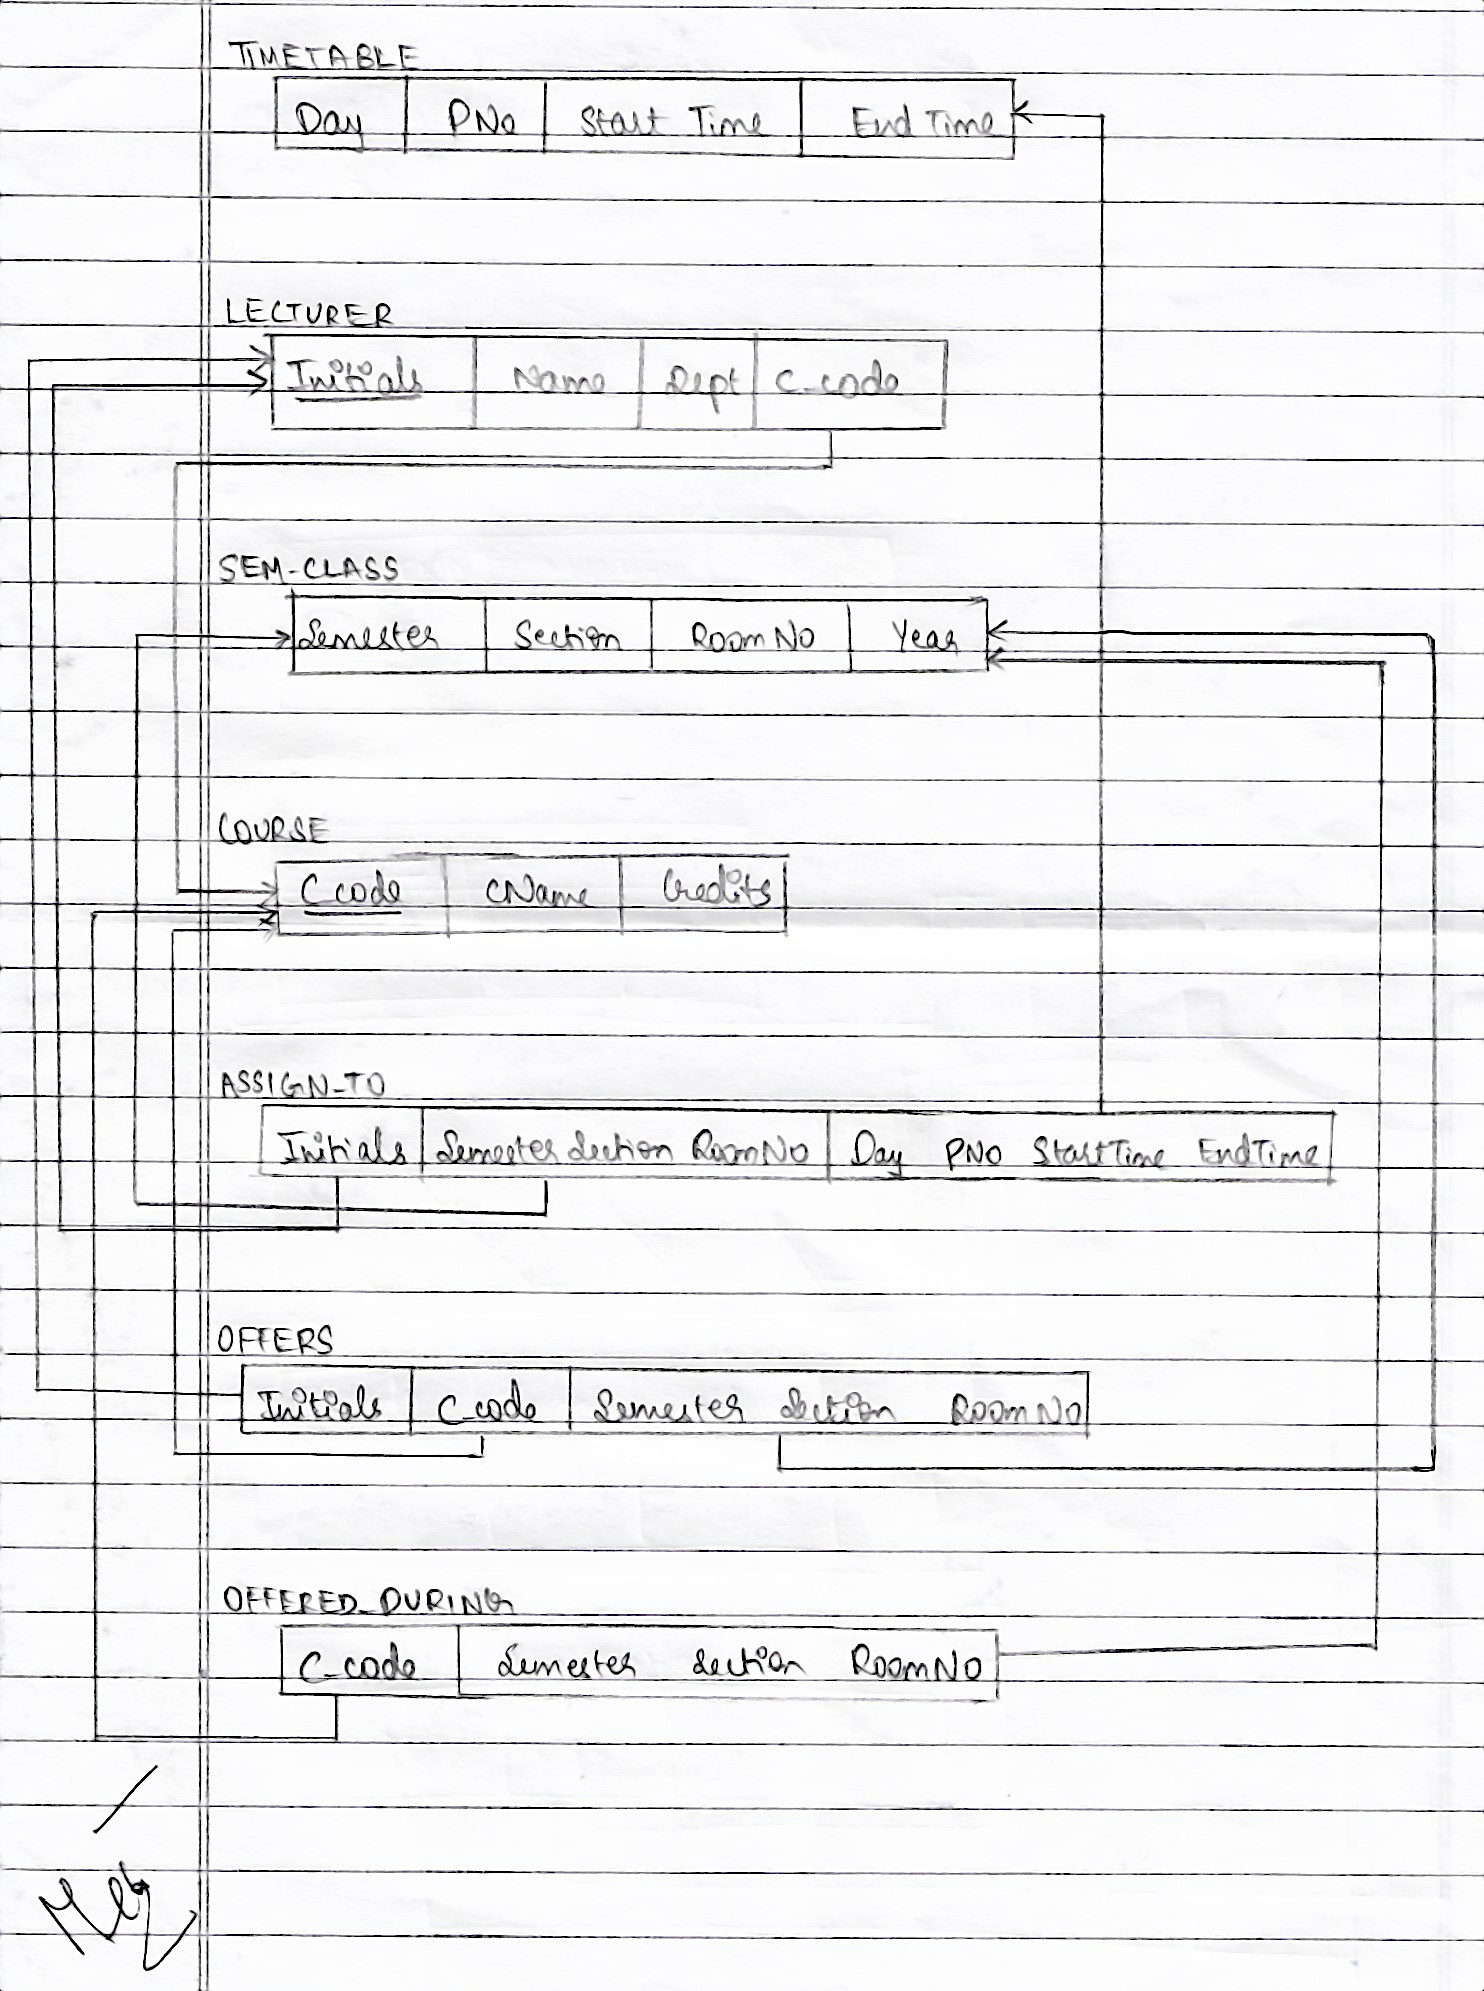 TIMETABLE
Day PNo Start Time End Time
LECTURER
Initials Name Dept C-code
SEM-CLASS
Semester Section RoomNo Year
COURSE
C code CName Credits
ASSIGN_TO
Initials Semester Section RoomNo Day PNO StartTime EndTime
OFFERS
Initials C_code Semester Section RoomNo
OFFERED_DURING
C_code Semester Section RoomNo